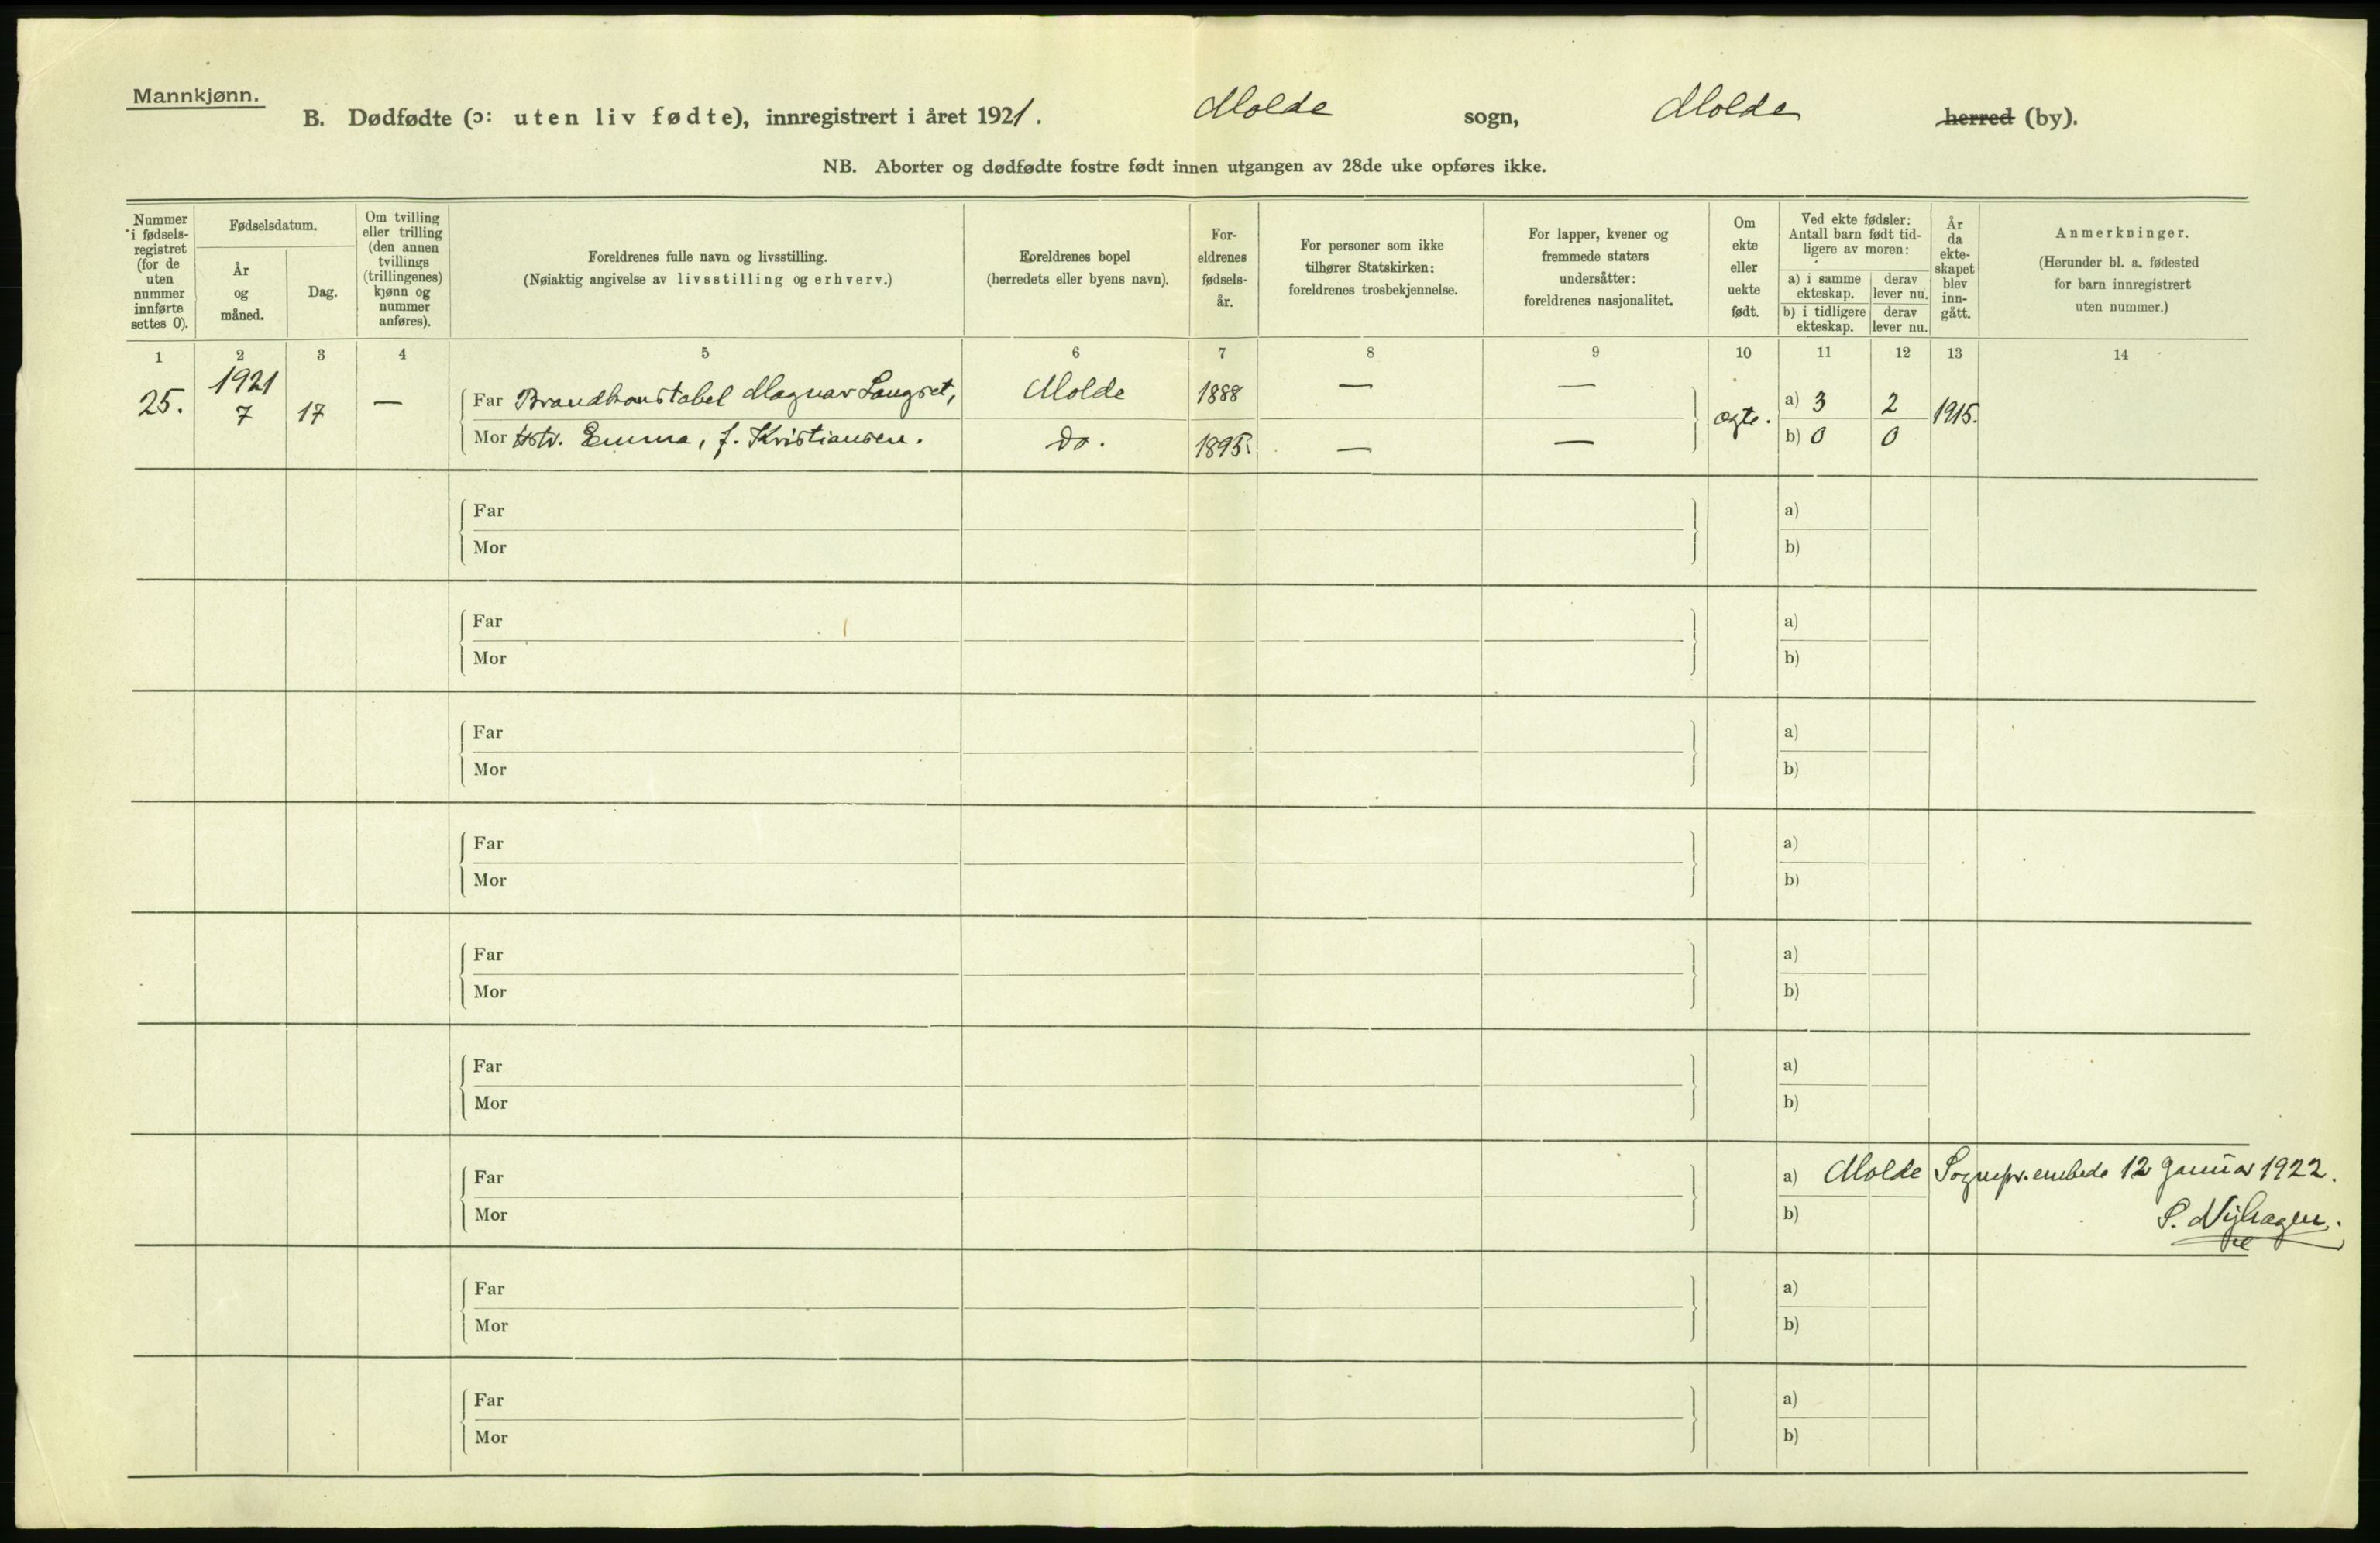 Mannkjønn.
B. Dødfødte (ɔ: uten liv fødte), innregistrert i året 1921. Molde sogn, Molde herred (by).
NB. Aborter og dødfødte fostre født innen utgangen av 28de uke opføres ikke.
Nummer
i fødsels-
registret
(for de
uten
nummer
innførte
settes 0).
Fødselsdatum.
År
og
måned.
Dag.
Om tvilling
eller trilling
(den annen
tvillings
(trillingenes)
kjønn og
nummer
anføres).
Foreldrenes fulle navn og livsstilling.
(Nøiaktig angivelse av livsstilling og erhverv.)
Foreldrenes bopel
(herredets eller byens navn).
For-
eldrenes
fødsels-
år.
For personer som ikke
tilhører Statskirken:
foreldrenes trosbekjennelse.
For lapper, kvener og
fremmede staters
undersåtter:
foreldrenes nasjonalitet.
Om
ekte
eller
uekte
født.
Ved ekte fødsler:
Antall barn født tid-
ligere av moren:
a) i samme
ekteskap.
derav
lever nu.
b) i tidligere
ekteskap.
derav
lever nu.
År
da
ekte-
skapet
blev
inn-
gått.
Anmerkninger.
(Herunder bl. a. fødested
for barn innregistrert
uten nummer.)
1 2 3 4 5 6 7 8 9 10 11 12 13 14
25. 1921 7 17 — Far Brandkonstabel Magnar Langset, Molde 1888 — — ægte. a) 3 2 1915.
Mor Hstr. Emma, f. Kristiansen. do. 1895. — — b) 0 0
Far a)
Mor b)
Far a)
Mor b)
Far a)
Mor b)
Far a)
Mor b)
Far a)
Mor b)
Far a)
Mor b)
Far a) Molde Sognepr.embede 12 Januar 1922.
Mor b) S. Nyhagen.
Far a)
Mor b)
Far a)
Mor b)